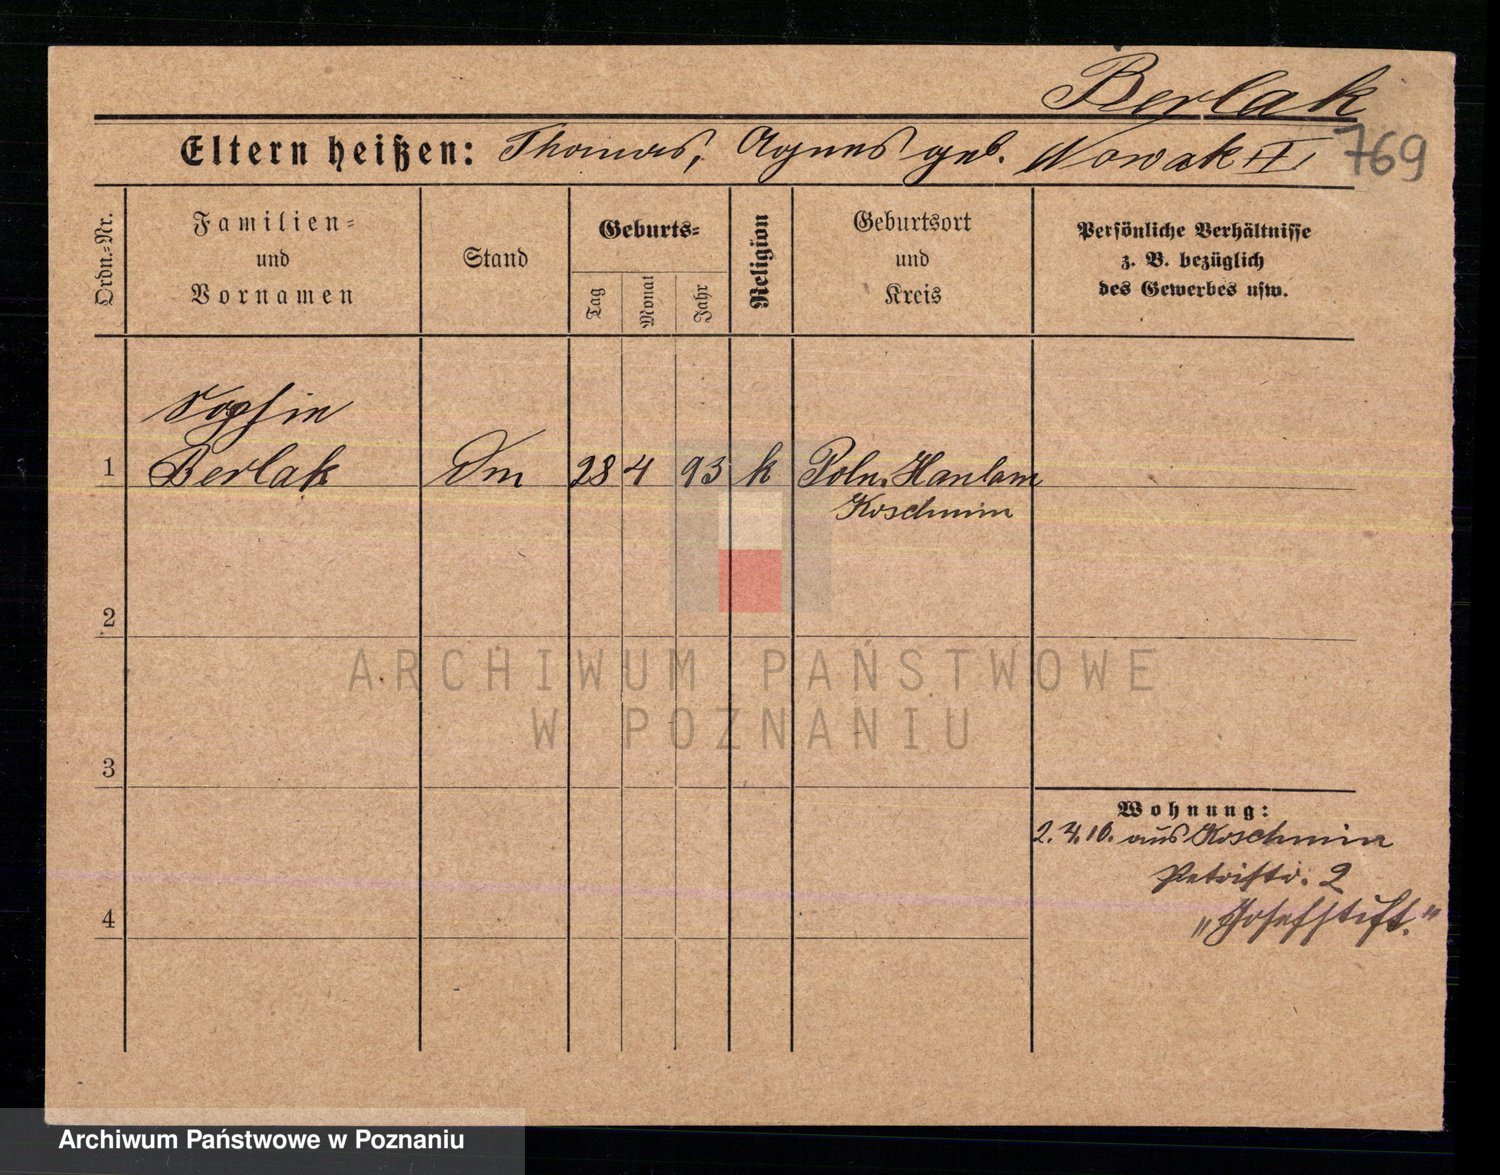 Berlak
Eltern heißen: Thomas, Agnes geb. Nowak
769
Ordn.-Nr.
Familien-
und
Vornamen
Stand
Geburts-
Tag
Monat
Jahr
Religion
Geburtsort
und
Kreis
Persönliche Verhältnisse
z. B. bezüglich
des Gewerbes usw.
Sophie
1 Berlak 28 4 93 k Poln.
Koschmin
2
3
4
Wohnung:
2.4.10. aus Koschmin
Petristr. 2
„Josefstift."
ARCHIWUM PAŃSTWOWE
W POZNANIU
Archiwum Państwowe w Poznaniu